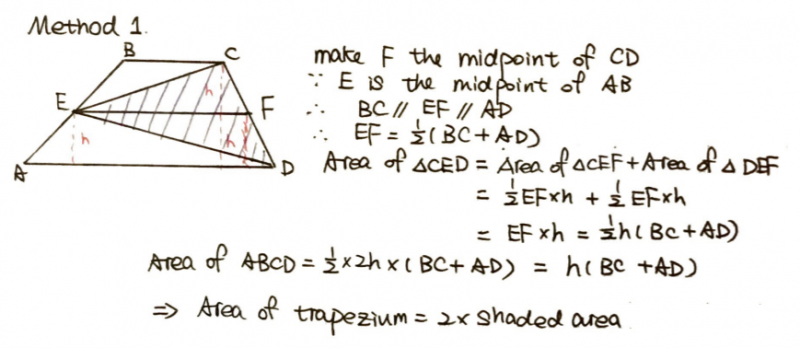 Method 1.
B
C
E
F
h
h
h
A
D
make F the midpoint of CD
∵ E is the midpoint of AB
∴ BC // EF // AD
∴ EF = ½(BC + AD)
Area of △CED = Area of △CEF + Area of △ DEF
= ½EF×h + ½EF×h
= EF×h = ½h(BC+AD)
Area of ABCD = ½×2h×(BC+AD) = h(BC+AD)
⇒ Area of trapezium = 2× Shaded area